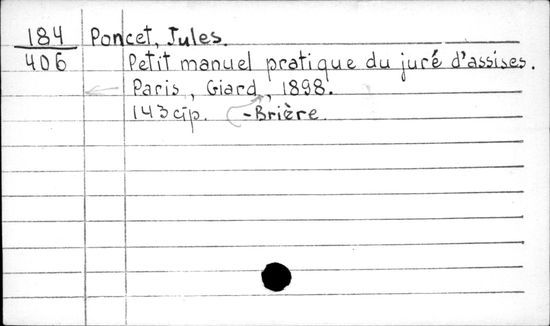 184 Poncet, Jules.
406 Petit manuel pratique du juré d'assises.
Paris, Giard, 1898.
143 cip. -Brière